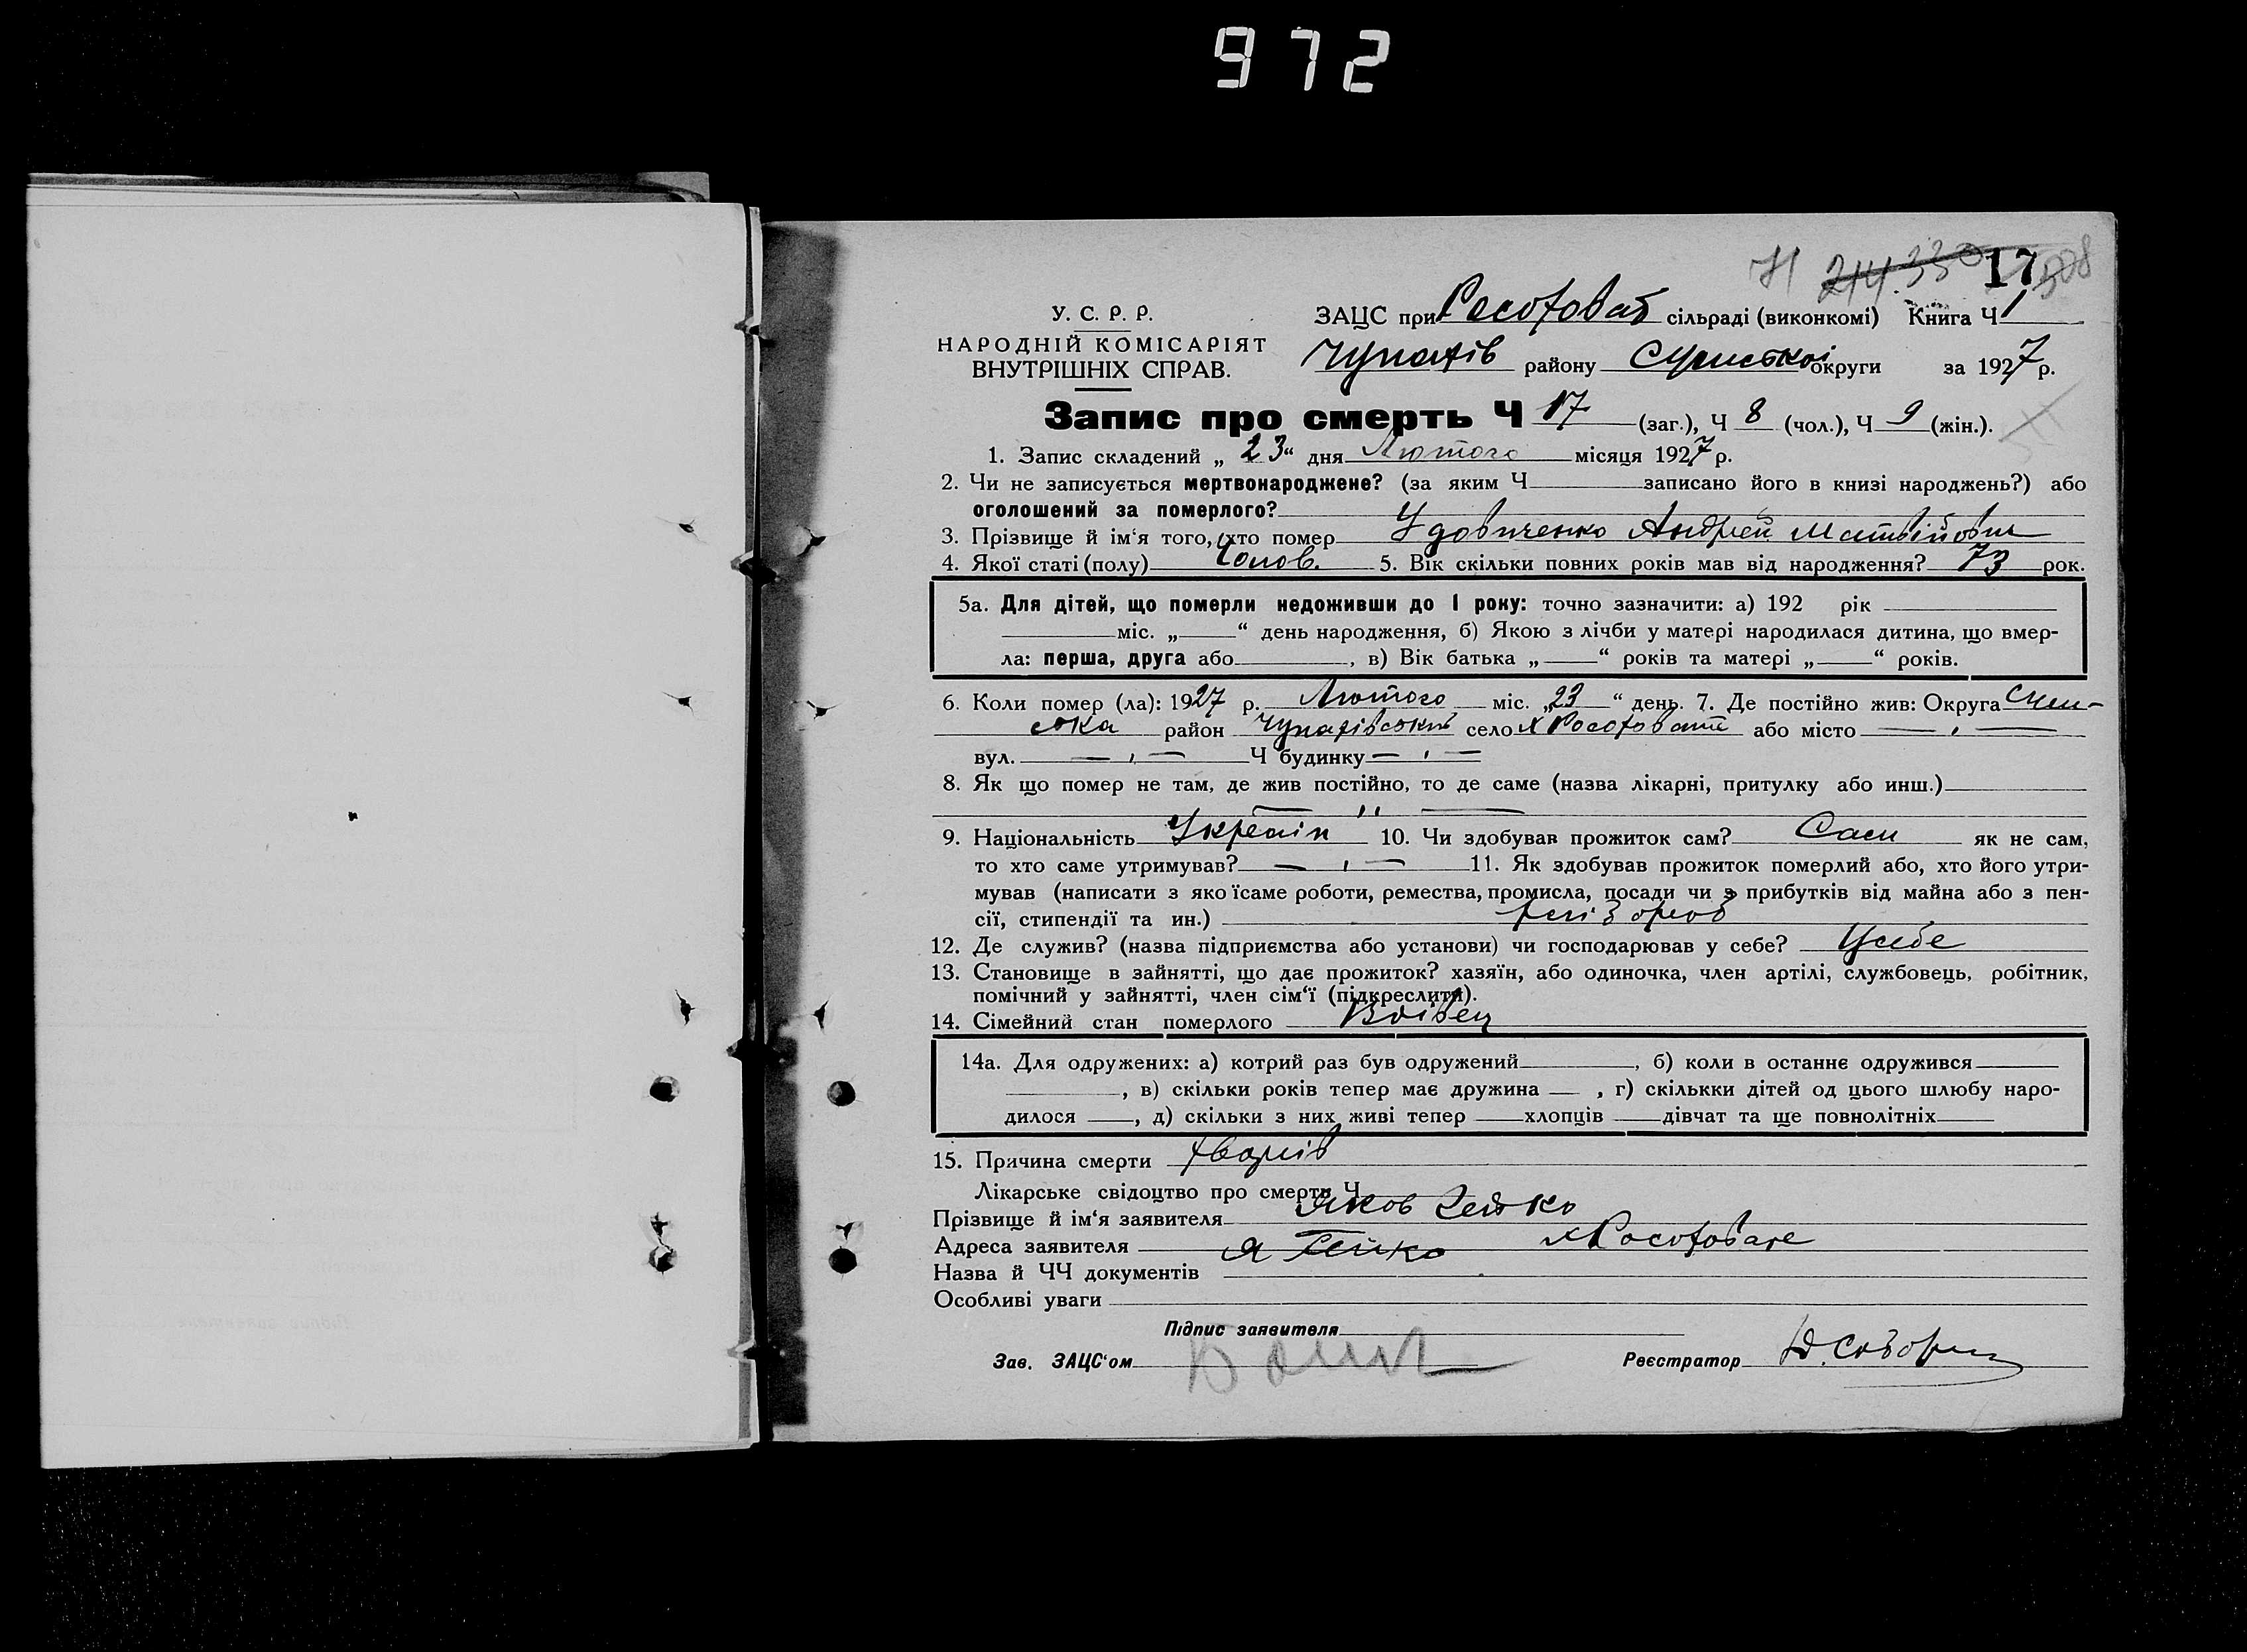 972
17
У. С. Р. Р.
НАРОДНІЙ КОМІСАРІЯТ
ВНУТРІШНІХ СПРАВ.
ЗАЦС при сільраді (виконкомі) Книга Ч 1
району округи за 1927 р.
Запис про смерть Ч 17 (заг.), Ч 8 (чол.), Ч 9 (жін.).
1. Запис складений „ 23 “ дня Лютого місяця 1927 р.
2. Чи не записується мертвонароджене? (за яким Ч записано його в книзі народжень?) або
оголошений за померлого?
3. Прізвище й ім‘я того, хто помер Удовиченко Андрей Матвійович
4. Якої статі (полу) Чолов. 5. Вік скільки повних років мав від народження? 73 рок.
5а. Для дітей, що померли недоживши до 1 року: точно зазначити: а) 192 рік
міс. „ “ день народження, б) Якою з лічби у матері народилася дитина, що вмер-
ла: перша, друга або , в) Вік батька „ “ років та матері „ “ років.
6. Коли помер (ла): 1927 р. Лютого міс. „ 23 “ день. 7. Де постійно жив: Округа
район село або місто
вул. Ч будинку
8. Як що помер не там, де жив постійно, то де саме (назва лікарні, притулку або инш.)
9. Національність Україн 10. Чи здобував прожиток сам? Сам як не сам,
то хто саме утримував? 11. Як здобував прожиток померлий або, хто його утри-
мував (написати з якоїсаме роботи, ремества, промисла, посади чи з прибутків від майна або з пен-
сії, стипендії та ин.)
12. Де служив? (назва підприємства або установи) чи господарював у себе? У себе
13. Становище в зайнятті, що дає прожиток? хазяїн, або одиночка, член артілі, службовець, робітник,
помічний у зайнятті, член сім‘ї (підкреслити).
14. Сімейний стан померлого Вдівец
14а. Для одружених: а) котрий раз був одружений , б) коли в останнє одружився
, в) скільки років тепер має дружина , г) скількки дітей од цього шлюбу наро-
дилося , д) скільки з них живі тепер хлопців дівчат та ще повнолітніх
15. Причина смерти
Лікарське свідоцтво про смерть Ч
Прізвище й ім‘я заявителя Яков Гейко
Адреса заявителя Я Гейко
Назва й ЧЧ документів
Особливі уваги
Підпис заявителя
Зав. ЗАЦС‘ом Реєстратор